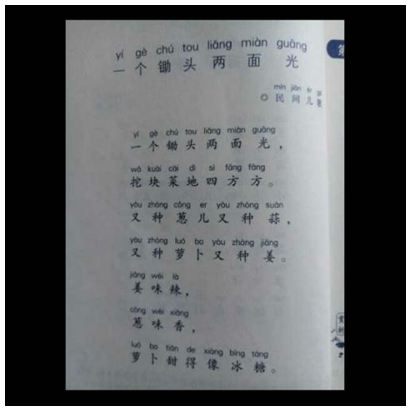 yí gè chú tou liǎng miàn guāng
一个锄头两面光
mín jiān ér
◎民间儿歌
yí gè chú tou liǎng miàn guāng
一个锄头两面光，
wā kuài cài dì sì fāng fāng
挖块菜地四方方。
yòu zhòng cōng er yòu zhòng suàn
又种葱儿又种蒜，
yòu zhòng luó bo yòu zhòng jiāng
又种萝卜又种姜。
jiāng wèi là
姜味辣，
cōng wèi xiāng
葱味香，
luó bo tián de xiàng bīng táng
萝卜甜得像冰糖。